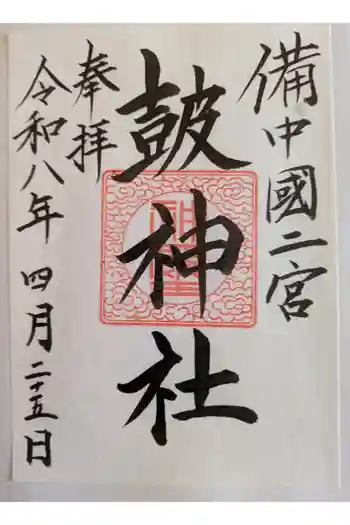 備中國二宮
皷神社
奉拝
令和八年四月二十五日